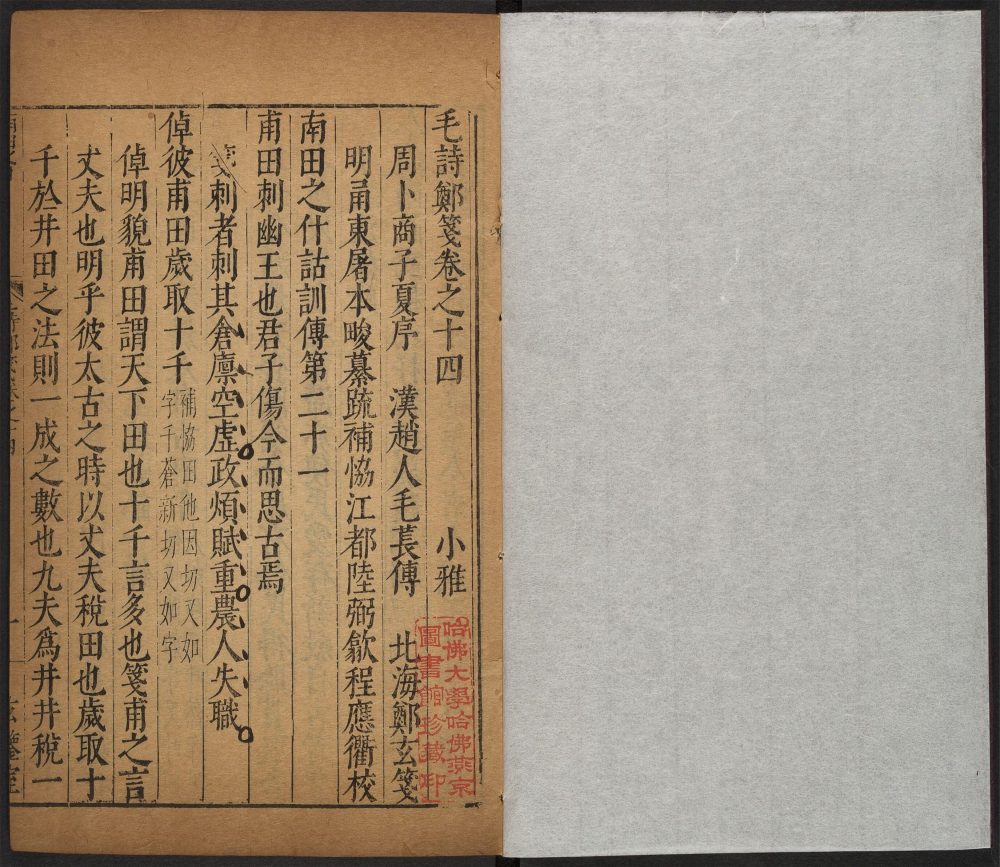 毛詩鄭箋卷之十四 小雅
周卜商子夏序 漢趙人毛萇傳 北海鄭玄箋
明甬東屠本畯纂疏補恊江都陸弼歙程應衢校
南田之什詁訓傳第二十一
甫田刺幽王也君子傷今而思古焉
箋刺者刺其倉廪空虛政煩賦重農人失職
倬彼甫田歲取十千
補恊田他因切又如
字千蒼新切又如字
倬明貌甫田謂天下田也十千言多也箋甫之言
丈夫也明乎彼太古之時以丈夫稅田也歲取十
千於井田之法則一成之數也九夫爲井井稅一
哈佛大學哈佛燕京
圖書館珍藏印